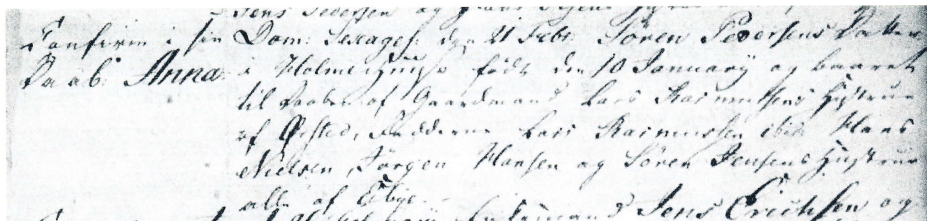 Jens Pedersen og
Dom: Sexages: den 21 Febr: Søren Pedersens Datter
Daab: Anna i Holmehuuse født den 10 Januarÿ og baaret
til Daaben af Gaardmand Lars Rasmussens Hustrue
af Ørsted, Fadderne Lars Rasmussen ibid: Hans
Nielsen, Jørgen Hansen og Søren Jensens Hustrue
alle af Ebye.
Jens Erichsen og